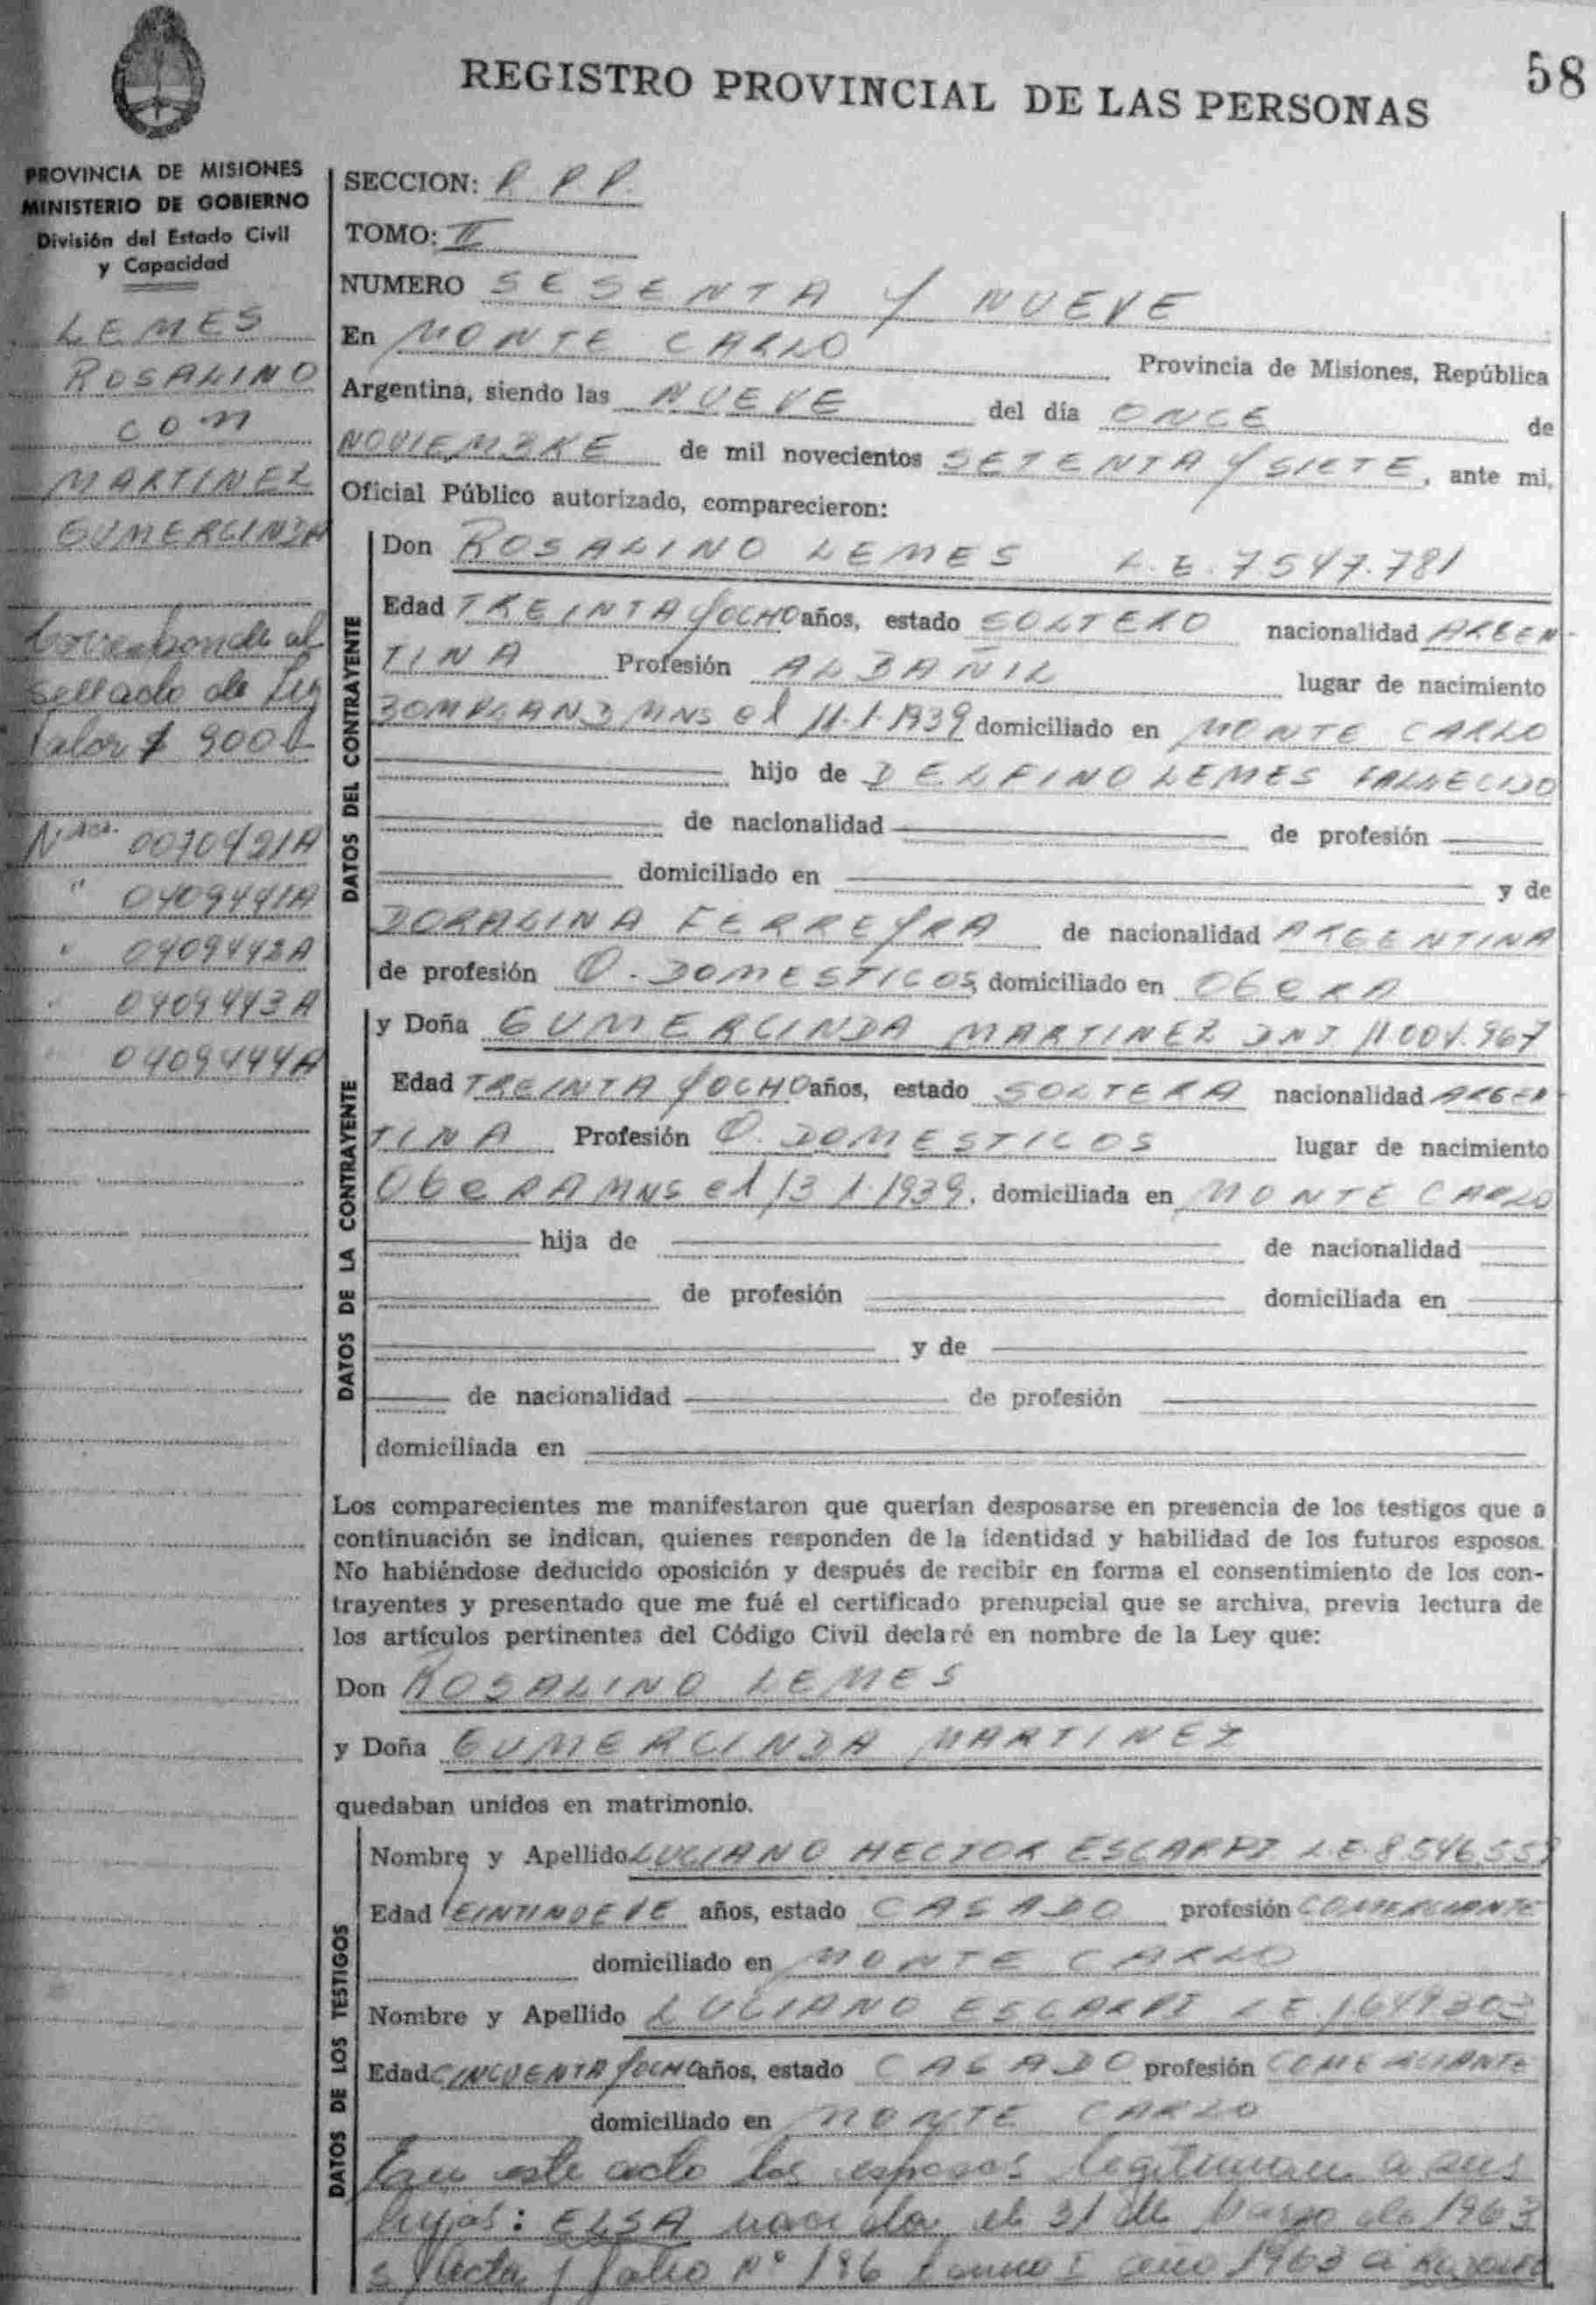 REGISTRO PROVINCIAL DE LAS PERSONAS
58
PROVINCIA DE MISIONES
MINISTERIO DE GOBIERNO
División del Estado Civil
y Capacidad
LEMES
ROSALINO
con
MARTINEZ
GUMERCINDA
Corresponde al
sellado de Ley
Valor $ 900
0070421A
" 0409441A
" 0409442A
" 0409443A
" 0409444A
SECCION: P. P. P.
TOMO: II
NUMERO SESENTA Y NUEVE
En MONTE CARLO Provincia de Misiones, República
Argentina, siendo las NUEVE del día ONCE de
NOVIEMBRE de mil novecientos SETENTA Y SIETE, ante mi,
Oficial Público autorizado, comparecieron:
DATOS DEL CONTRAYENTE
Don ROSALINO LEMES L.E. 7547.781
Edad TREINTA Y OCHO años, estado SOLTERO nacionalidad ARGEN
TINA Profesión ALBAÑIL lugar de nacimiento
BOMPLAND MNS el 11.1.1939 domiciliado en MONTE CARLO
hijo de DELFINO LEMES FALLECIDO
de nacionalidad de profesión
domiciliado en y de
DORALINA FERREYRA de nacionalidad ARGENTINA
de profesión Q. DOMESTICOS domiciliado en OBERA
DATOS DE LA CONTRAYENTE
y Doña GUMERCINDA MARTINEZ DNI 11.004.967
Edad TREINTA Y OCHO años, estado SOLTERA nacionalidad ARGEN
TINA Profesión Q. DOMESTICOS lugar de nacimiento
OBERA MNS el 13.1.1939. domiciliada en MONTE CARLO
hija de de nacionalidad
de profesión domiciliada en
y de
de nacionalidad de profesión
domiciliada en
Los comparecientes me manifestaron que querían desposarse en presencia de los testigos que a
continuación se indican, quienes responden de la identidad y habilidad de los futuros esposos.
No habiéndose deducido oposición y después de recibir en forma el consentimiento de los con-
trayentes y presentado que me fué el certificado prenupcial que se archiva, previa lectura de
los artículos pertinentes del Código Civil declaré en nombre de la Ley que:
Don ROSALINO LEMES
y Doña GUMERCINDA MARTINEZ
quedaban unidos en matrimonio.
DATOS DE LOS TESTIGOS
Nombre y Apellido LUCIANO HECTOR ESCARPI L.E. 8546.55
Edad VEINTINUEVE años, estado CASADO profesión COMERCIANTE
domiciliado en MONTE CARLO
Nombre y Apellido LUCIANO ESCARPI L.E. 1.649303
Edad CINCUENTA Y OCHO años, estado CASADO profesión COMERCIANTE
domiciliado en MONTE CARLO
En este acto los esposos legitiman a sus
hijos: ELSA nacida el 31 de Marzo de 1963
acta y folio Nº 186 tomo I año 1963 a